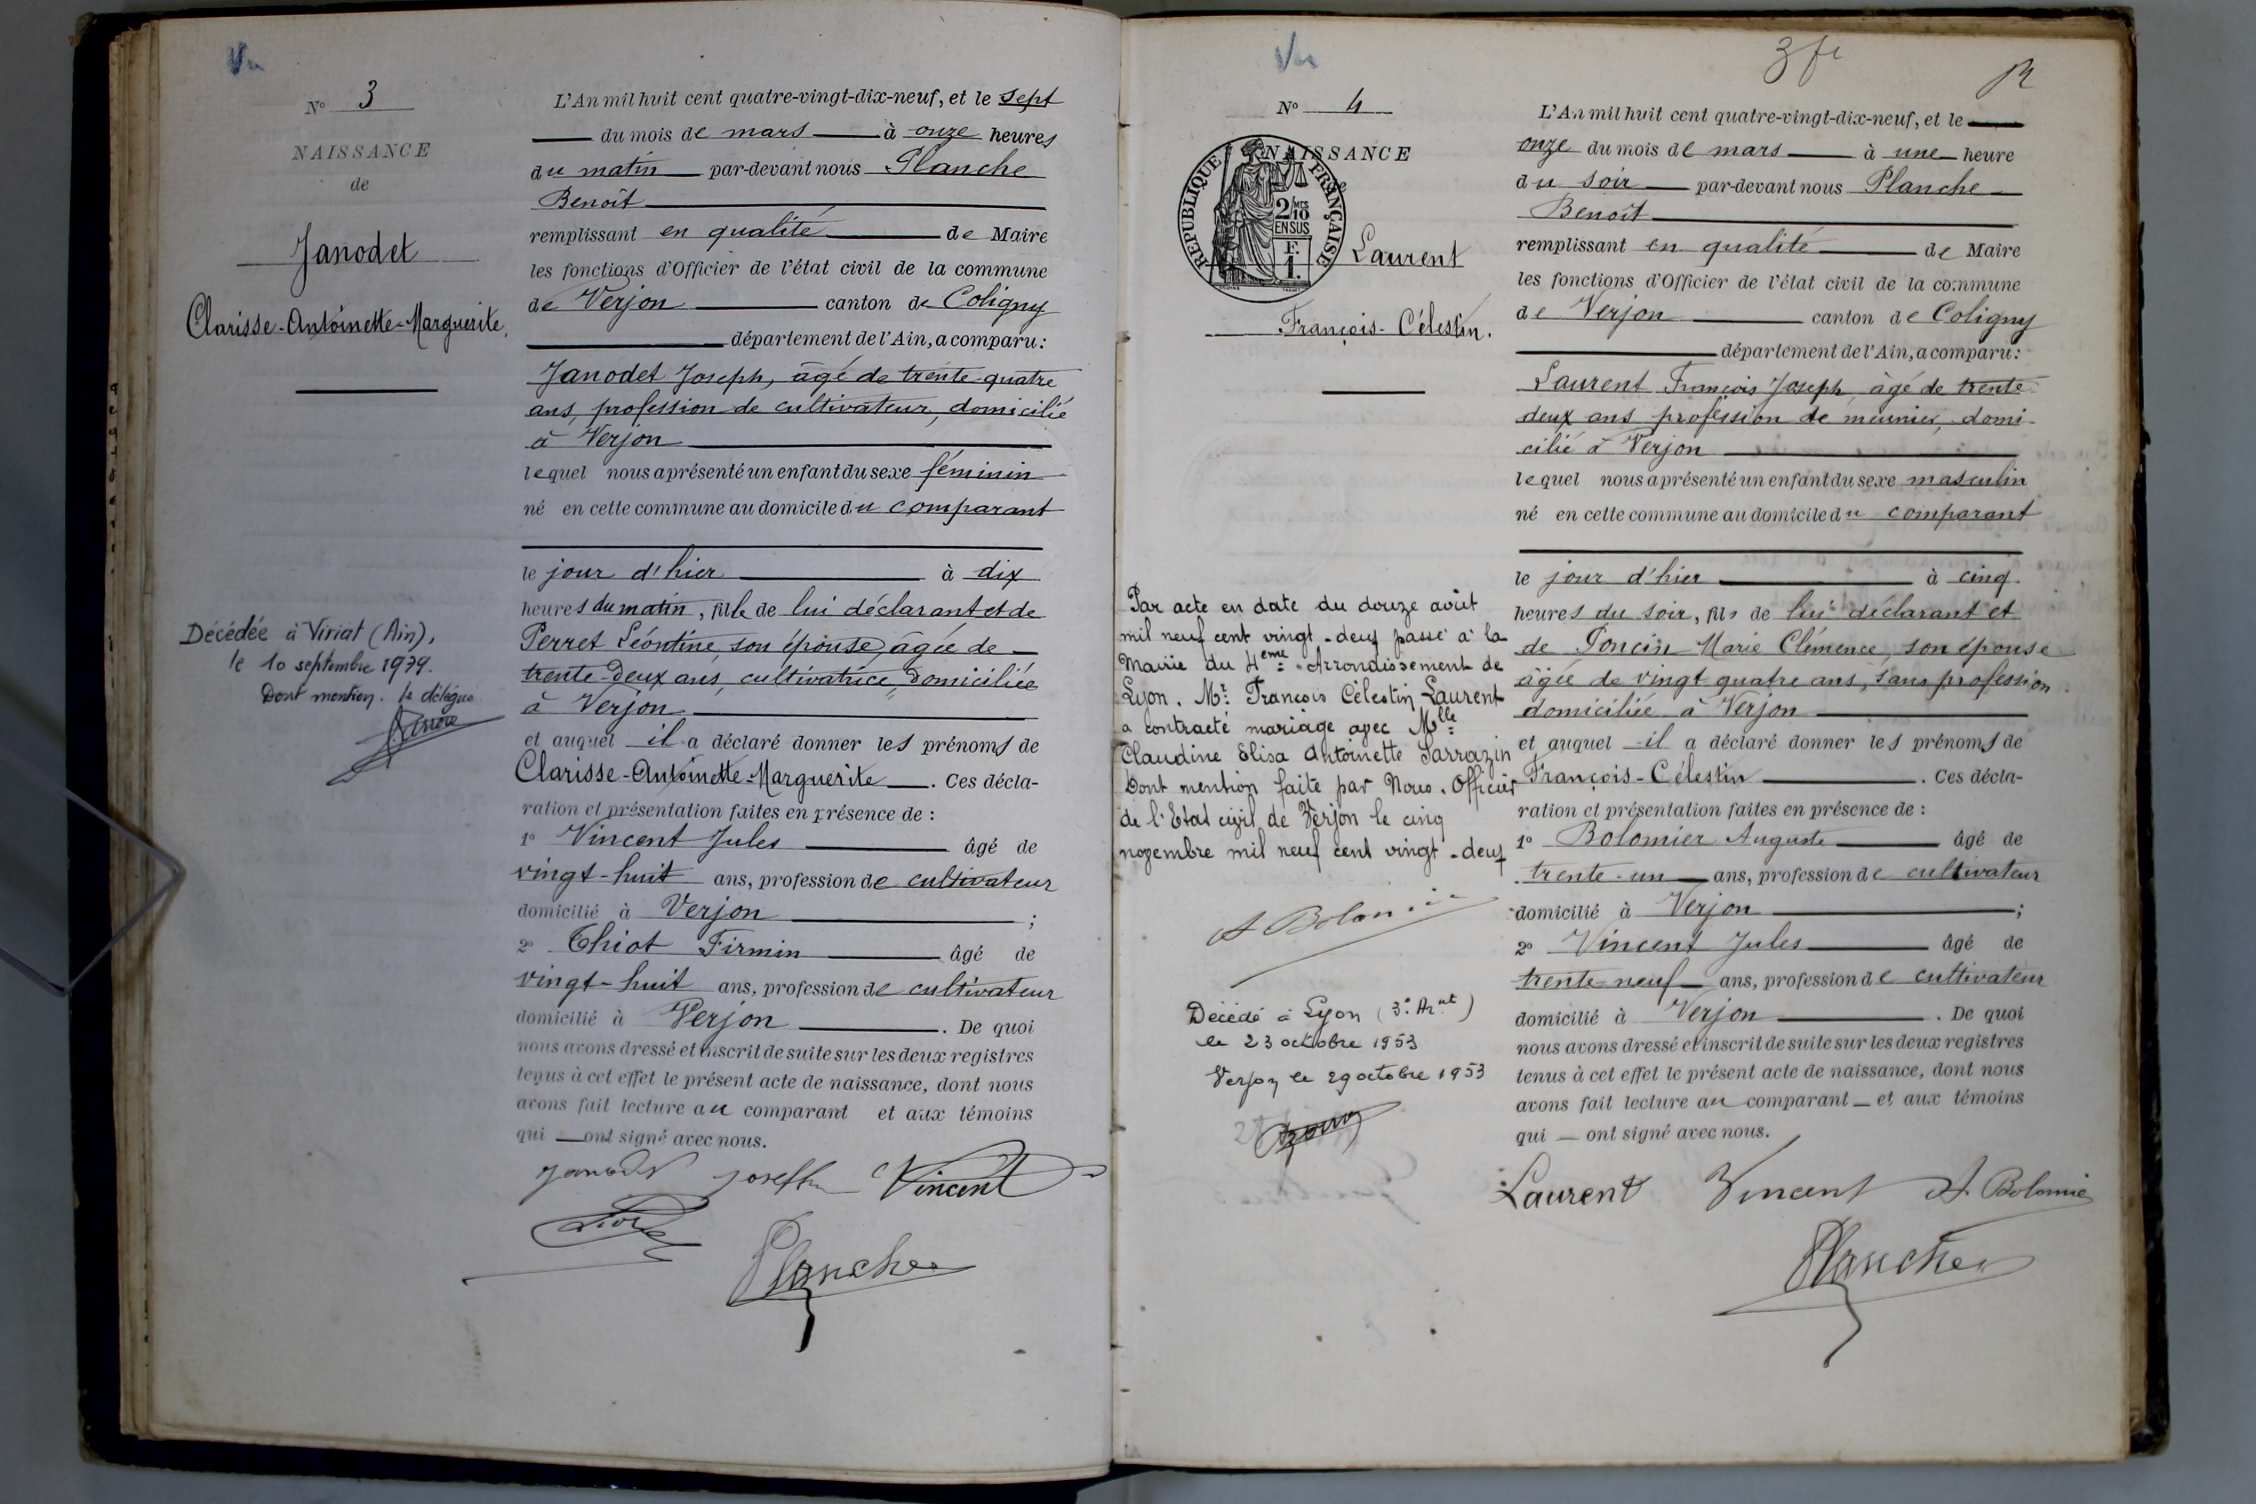 Vu
N° 3
NAISSANCE
de
Janodet
Clarisse-Antoinette-Marguerite.
Décédée à Viriat (Ain),
le 10 septembre 1979.
Dont mention. le délégué
L'An mil huit cent quatre-vingt-dix-neuf, et le sept
du mois de mars à onze heures
du matin par-devant nous Planche
Benoît
remplissant en qualité de Maire
les fonctions d'Officier de l'état civil de la commune
de Verjon canton de Coligny
département de l'Ain, a comparu:
Janodet Joseph, âgé de trente-quatre
ans, profession de cultivateur, domicilié
à Verjon
lequel nous a présenté un enfant du sexe féminin
né en cette commune au domicile du comparant
le jour d'hier à dix
heures du matin, fille de lui déclarant et de
Perret Léontine, son épouse, âgée de
trente-deux ans, cultivatrice, domiciliée
à Verjon
et auquel il a déclaré donner les prénoms de
Clarisse-Antoinette-Marguerite. Ces décla-
ration et présentation faites en présence de :
1° Vincent Jules âgé de
vingt-huit ans, profession de cultivateur
domicilié à Verjon ;
2° Thiot Firmin âgé de
vingt-huit ans, profession de cultivateur
domicilié à Verjon . De quoi
nous avons dressé et inscrit de suite sur les deux registres
tenus à cet effet le présent acte de naissance, dont nous
avons fait lecture au comparant et aux témoins
qui ont signé avec nous.
Janodet Joseph Vincent
Planche
Vu
3 fr
N° 4
NAISSANCE
de
REPUBLIQUE FRANÇAISE
2/10 MES
EN SUS
F.
1.
Laurent
François-Célestin.
Par acte en date du douze août
mil neuf cent vingt-deux passé à la
Mairie du 4eme Arrondissement de
Lyon. Mr. François Célestin Laurent
a contracté mariage avec Mlle
Claudine Elisa Antoinette Sarrazin
Dont mention faite par Nous. Officier
de l'Etat civil de Verjon le cinq
novembre mil neuf cent vingt-deux
A Bolomier
Décédé à Lyon (3e Arnt)
le 23 octobre 1953
Verjon le 29 octobre 1953
L'An mil huit cent quatre-vingt-dix-neuf, et le
onze du mois de mars à une heure
du soir par-devant nous Planche
Benoît
remplissant en qualité de Maire
les fonctions d'Officier de l'état civil de la commune
de Verjon canton de Coligny
département de l'Ain, a comparu:
Laurent François Joseph, âgé de trente-
deux ans profession de meunier, domi-
cilié à Verjon
lequel nous a présenté un enfant du sexe masculin
né en cette commune au domicile du comparant
le jour d'hier à cinq
heures du soir, fils de lui déclarant et
de Poncin Marie Clémence, son épouse
âgée de vingt quatre ans, sans profession
domiciliée à Verjon
et auquel il a déclaré donner les prénoms de
François-Célestin . Ces décla-
ration et présentation faites en présence de :
1° Bolomier Auguste âgé de
trente-un ans, profession de cultivateur
domicilié à Verjon ;
2° Vincent Jules âgé de
trente-neuf ans, profession de cultivateur
domicilié à Verjon . De quoi
nous avons dressé et inscrit de suite sur les deux registres
tenus à cet effet le présent acte de naissance, dont nous
avons fait lecture au comparant et aux témoins
qui ont signé avec nous.
Laurent Vincent A. Bolomier
Planche